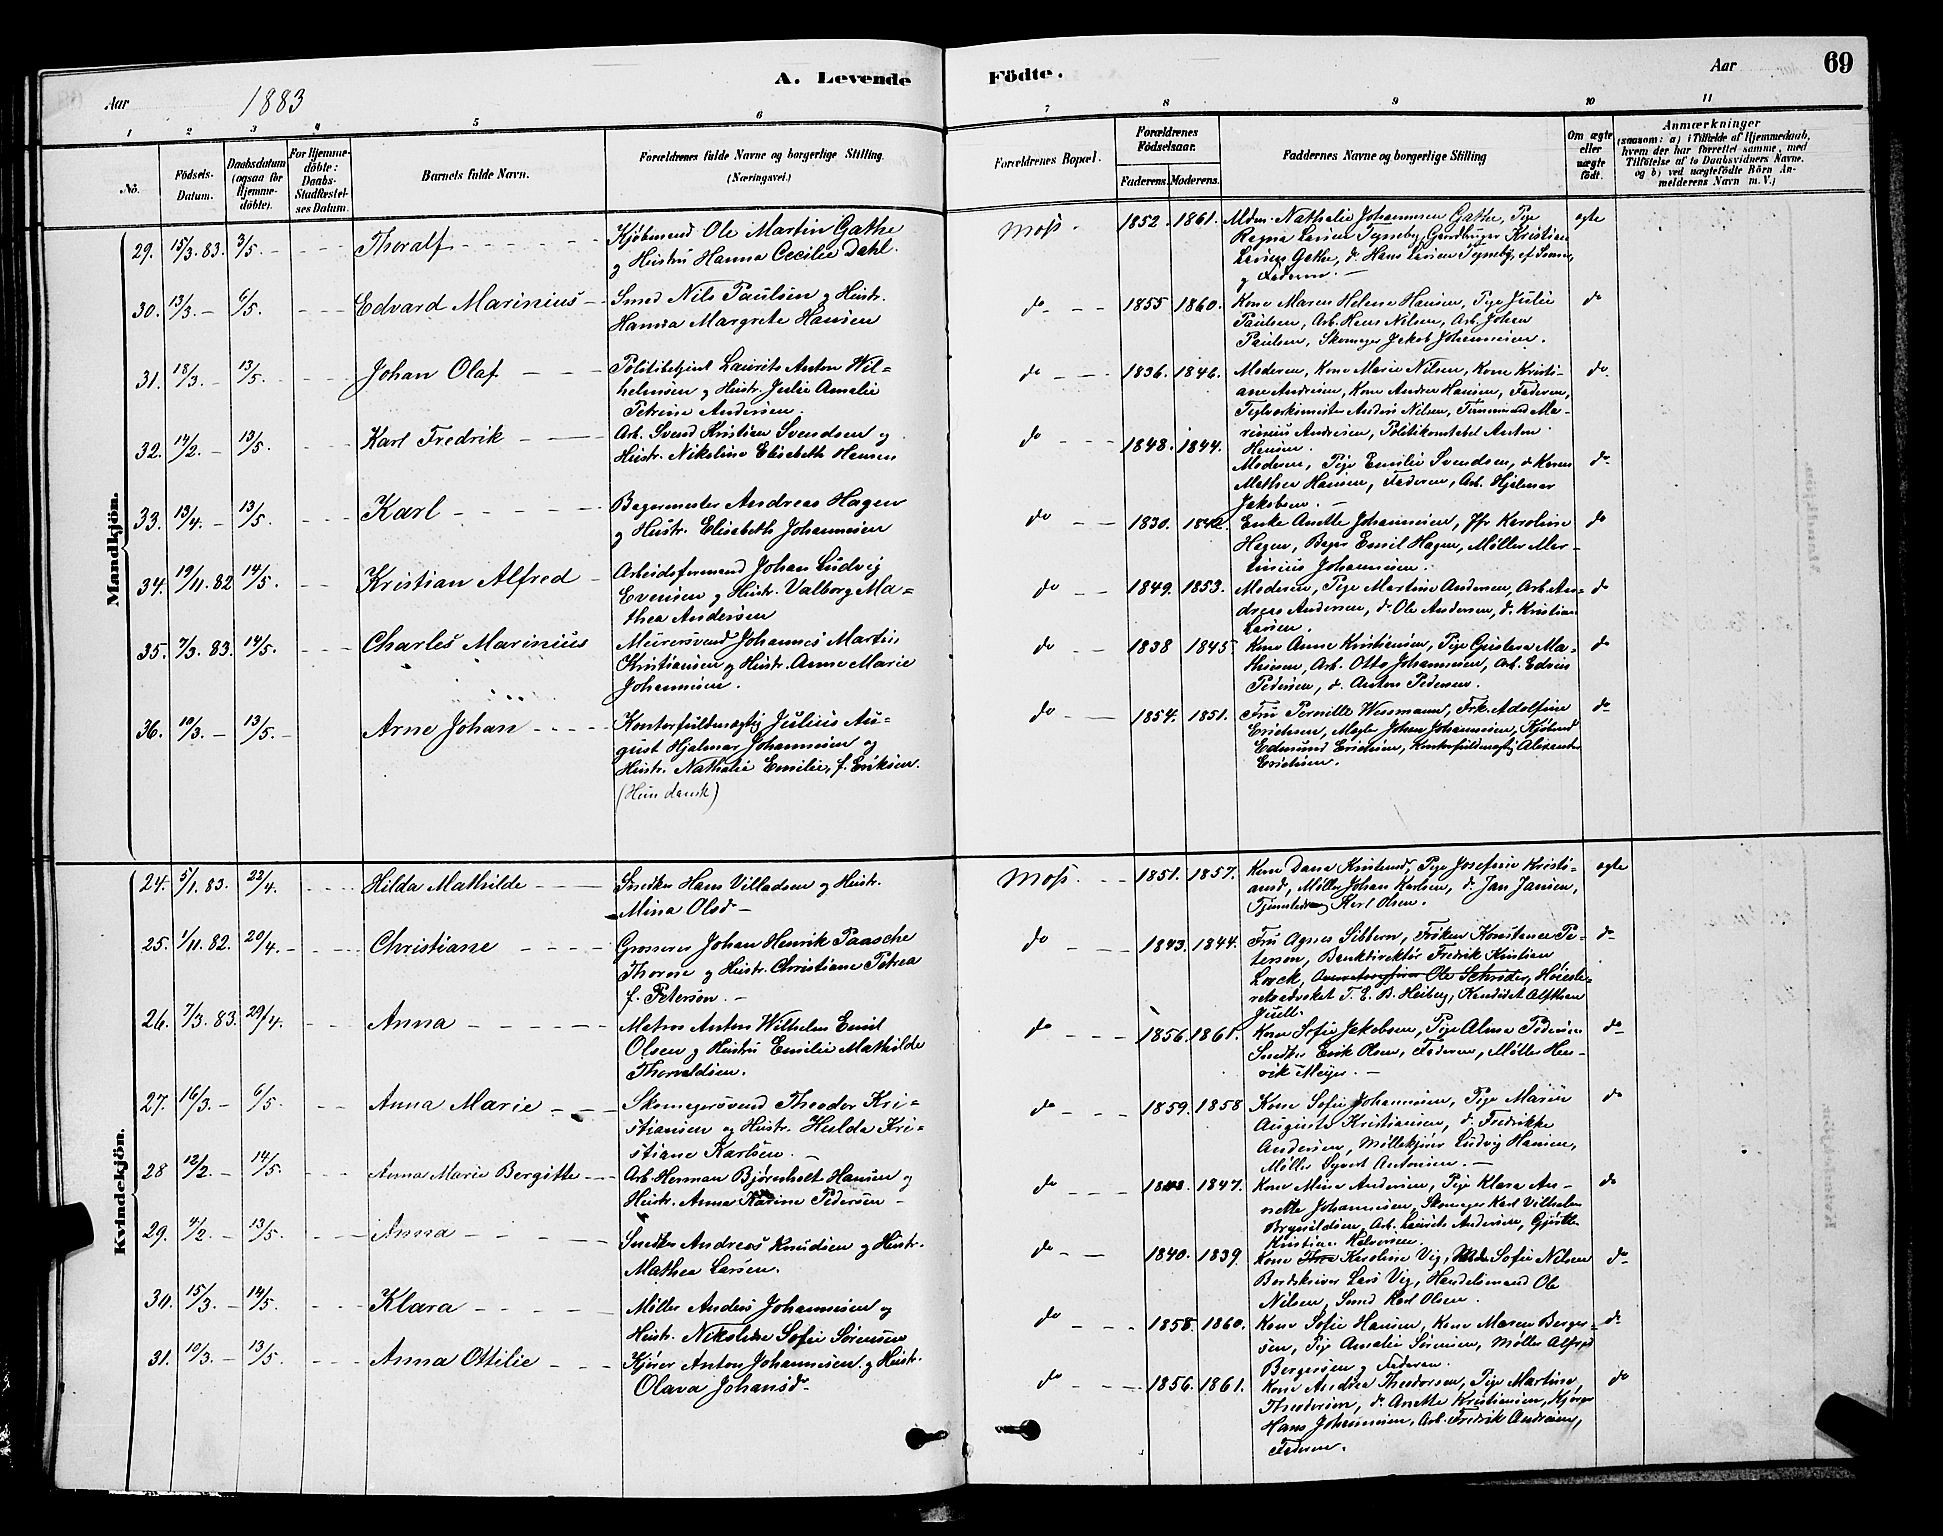 A. Levende
Födte.
Aar
69
Aar
1883
1
2
3
4
5
6
7
8
9
10
11
No.
Födsels-
Datum.
Daabsdatum
(ogsaa for
Hjemme-
döbte).
For Hjemme-
döbte:
Daabs-
Stadfæstel-
ses Datum.
Barnets fulde Navn.
Forældrenes fulde Navne og borgerlige Stilling.
(Næringsvei.)
Forældrenes Bopæl.
Forældrenes
Födselsaar.
Faderens.
Moderens.
Faddernes Navne og borgerlige Stilling
Om ægte
eller
uægte
født.
Anmærkninger
(saasom: a) i Tilfælde af Hjemmedaab,
hvem der har forrettet samme, med
Tilføielse af to Daabsvidners Navne.
og b) ved uægtefödte Börn An-
melderens Navn m. V.)
Mandkjön.
29. 15/3. 83. 3/5. Thoralf
Kjøbmand Ole Martin Gathe
og Hustru Hanna Cecilie Dahl.
Moss. 1852. 1861.
Mdm. Nathalie Johannesen Gathe, Pige
Ragna Larsen Tymsby, Gaardbruger Kristian
Larsen Gathe, do Hans Larsen Tymsby, af Sønner,
og Faderen.
ægte
30. 13/3. 6/5. Edvard Marinius
Smed Nils Paulsen og Hustr.
Hanna Margrete Hansen
do 1855 1860.
Kone Maren Helene Hansen, Pige Julie
Paulsen, Arb. Hans Nilsen, Arb. Johan
Paulsen, Skomager Jakob Johannesen.
do
31. 18/3. 13/5. Johan Olaf
Politibetjent Laurits Anton Wil=
helmsen og Hustr. Julie Amalie
Petrine Andersen.
do 1836. 1846.
Moderen, Kone Marie Nilsen, Kone Kristi-
ane Andresen, Kone Andrea Hansen, Faderen,
Teglverksmester Anders Nilsen, Tømmermand Ma-
rinius Andresen, Politikonstabel Anton
Hansen.
do
32. 14/2. 13/5. Karl Fredrik
Arb. Svend Kristian Svendsen og
Hustr. Nikoline Elisabeth Hansen
do 1848. 1844.
Moderen, Pige Emilie Svendsen, do Karen
Mathea Hansen, Faderen, Arb. Hjalmar
Jakobsen.
do
33. 13/4. 13/5. Karl
Bagermester Andreas Hagen
og Hustr. Elisabeth Johannesen
do 1830. 1842.
Enke Anette Johannesen, Jfr Karoline
Hagen, Bager Emil Hagen, Møller Mar-
tinius Johannesen.
do
34. 19/11. 82 14/5. Kristian Alfred
Arbeidsformand Johan Ludvig
Evensen og Hustr. Valborg Ma=
thea Andersen
do 1849. 1853.
Moderen, Pige Martine Andersen, Arb. An-
dreas Andersen, do Ole Andersen, do Kristian
Larsen.
do
35. 7/3. 83. 14/5. Charles Marinius
Murersvend Johannes Martin
Kristiansen og Hustr. Anne Marie
Johannesen.
do 1838 1845
Kone Anne Kristiansen, Pige Gustava Ma-
thisen, Arb. Otto Johannesen, Arb. Edvin
Pedersen, do. Anton Pedersen.
do
36. 10/3. 13/5. Arne Johan
Kontorfuldmægtig Julius Au=
gust Hjalmar Johannesen og
Hustr. Nathalie Emilie, f. Eriksen.
(Hun dansk)
do 1854. 1851.
Fru Pernille Wessmann, Frk. Adolfine
Erichsen, Mægler Johan Johannesen, Kjøbmd
Edmund Erichsen, Kontorfuldmægtig Alexander
Erichsen.
do
Kvindekjön.
24. 5/1. 83. 22/4. Hilda Mathilde
Snedker Hans Villadsen og Hustr.
Mina Olsd
Moss. 1851. 1857.
Kone Dana Knutsend, Pige Josefine Kristi-
ansd, Møller Johan Karlsen, do Jan Jansen,
Karl Olsen.
ægte
25. 1/11. 82. 20/4. Christiane
Grosserer Johan Henrik Paasche
Thorne og Hustr. Christiane Petrea
f. Peterson.
do 1843. 1844.
Fru Agnes Sibbern, Frøken Konstance Pe-
terson, Bankdirektør Fredrik Kristian
Lorck, Ole Schrøder, Høieste-
retsadvokat T. E. B. Heiberg, Kandidat Alfthan
Juell.
do
26. 7/3. 83. 29/4. Anna
Matros Anton Wilhelm Emil
Olsen og Hustru Emilie Mathilde
Thorvaldsen.
do 1856. 1861.
Kone Sofie Jakobsen, Pige Alma Pedersen
Snedker Erik Olsen, Faderen, Møller Hen-
rik Meyer.
do
27. 16/3. 6/5. Anna Marie
Skomagersvend Theodor Kri-
stiansen og Hustr. Hulda Kri-
stiane Karlsen.
do 1859. 1858
Kone Sofie Johannesen, Pige Marie
Augusta Kristiansen, do. Fredrikke
Andersen, Møllekjører Ludvig Hansen,
Møller Syvert Antonsen.
do
28 12/2. 14/5. Anna Marie Bergitte
Arb. Herman Bjørnholt Hansen og
Hustr. Anna Karine Pedersen
do 1847.
Kone Mina Andersen, Pige Klara An-
nette Johannesen, Skomager Karl Vilhelm
Brynildsen, Arb. Laurits Andersen, Gjørtler
Kristian Halvorsen.
do
29. 4/2. 13/5. Anna
Snedker Andreas Knudsen og Hustr.
Mathea Larsen.
do 1840. 1839.
Kone Karoline Vig, Sofie Nilsen
Bordskriver Lars Vig, Handelsmand Ole
Nilsen, Smed Karl Olsen.
do
30. 15/3. 14/5. Klara
Møller Anders Johannesen og
Hustr. Nikoline Sofie Sørensen
do 1858. 1860.
Kone Sofie Hansen, Kone Maren Berger-
sen, Pige Amalie Sørensen, Møller Alfred
Bergersen og Faderen.
do
31. 10/3. 13/5. Anna Ottilie
Kjører Anton Johannesen og Hustr.
Olava Johansd
do 1856. 1861.
Kone Andrea Theodorsen, Pige Martine
Theodorsen, do. Anette Kristiansen, Kjører
Hans Johannesen, Arb. Fredrik Andresen,
Faderen.
do